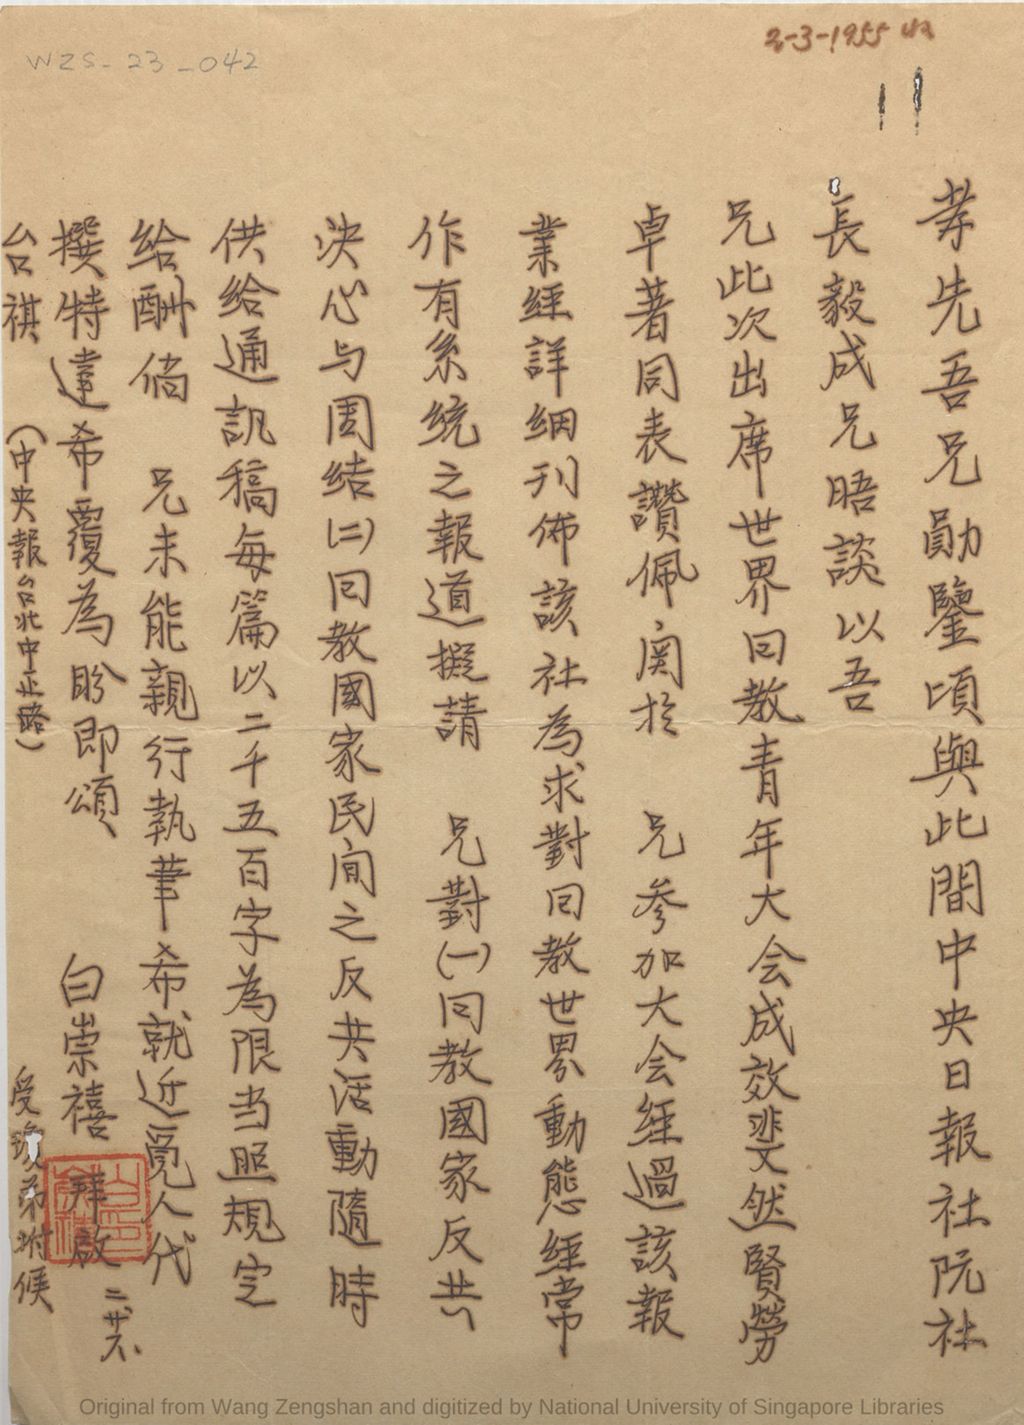 WZS-23-042
2-3-1955
孝先吾兄勛鑒頃與此間中央日報社阮社
長毅成兄晤談以吾
兄此次出席世界回教青年大会成效斐然賢勞
卓著同表讚佩関於　兄參加大会經過該報
業經詳細刊佈該社為求對回教世界動態經常
作有系統之報道擬請　兄對(一)回教國家反共
決心与团结(二)回教國家民间之反共活動隨時
供给通訊稿每篇以二千五百字為限当照規定
給酬倘　兄未能親行執筆希就近覓人代
撰特達希覆為盼即頌
台祺　(中央報台北中正路)
白崇禧 拜啟 二廿六
受 弟附候
Original from Wang Zengshan and digitized by National University of Singapore Libraries